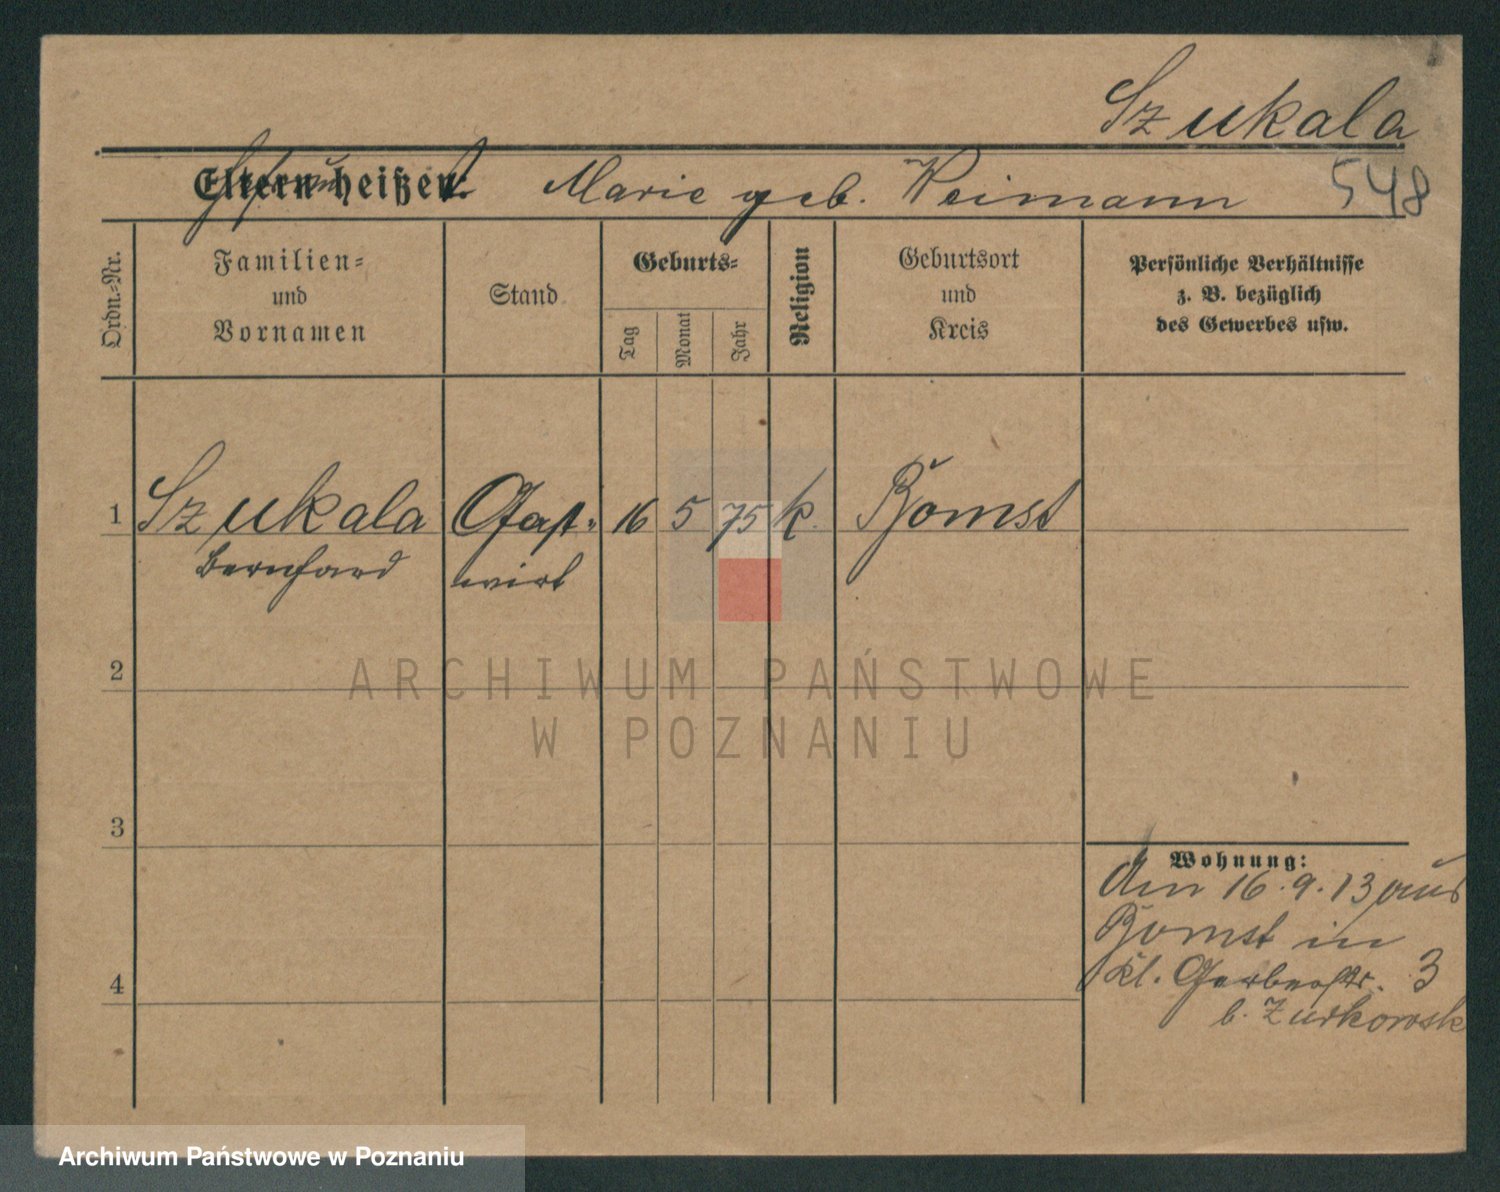 Szukala
Eltern heißen: Marie geb. Weimann
548
Ordn.-Nr.
Familien-
und
Vornamen
Stand
Geburts-
Tag
Monat
Jahr
Religion
Geburtsort
und
Kreis
Persönliche Verhältnisse
z. B. bezüglich
des Gewerbes usw.
1 Szukala Gast- 16 5 75 k. Bomst
Bernhard wirt
2
ARCHIWUM PAŃSTWOWE
W POZNANIU
3
Wohnung:
Am 16.9.13 aus
Bomst in
4
Kl. Gerberstr. 3
b. Zurkowsk
Archiwum Państwowe w Poznaniu